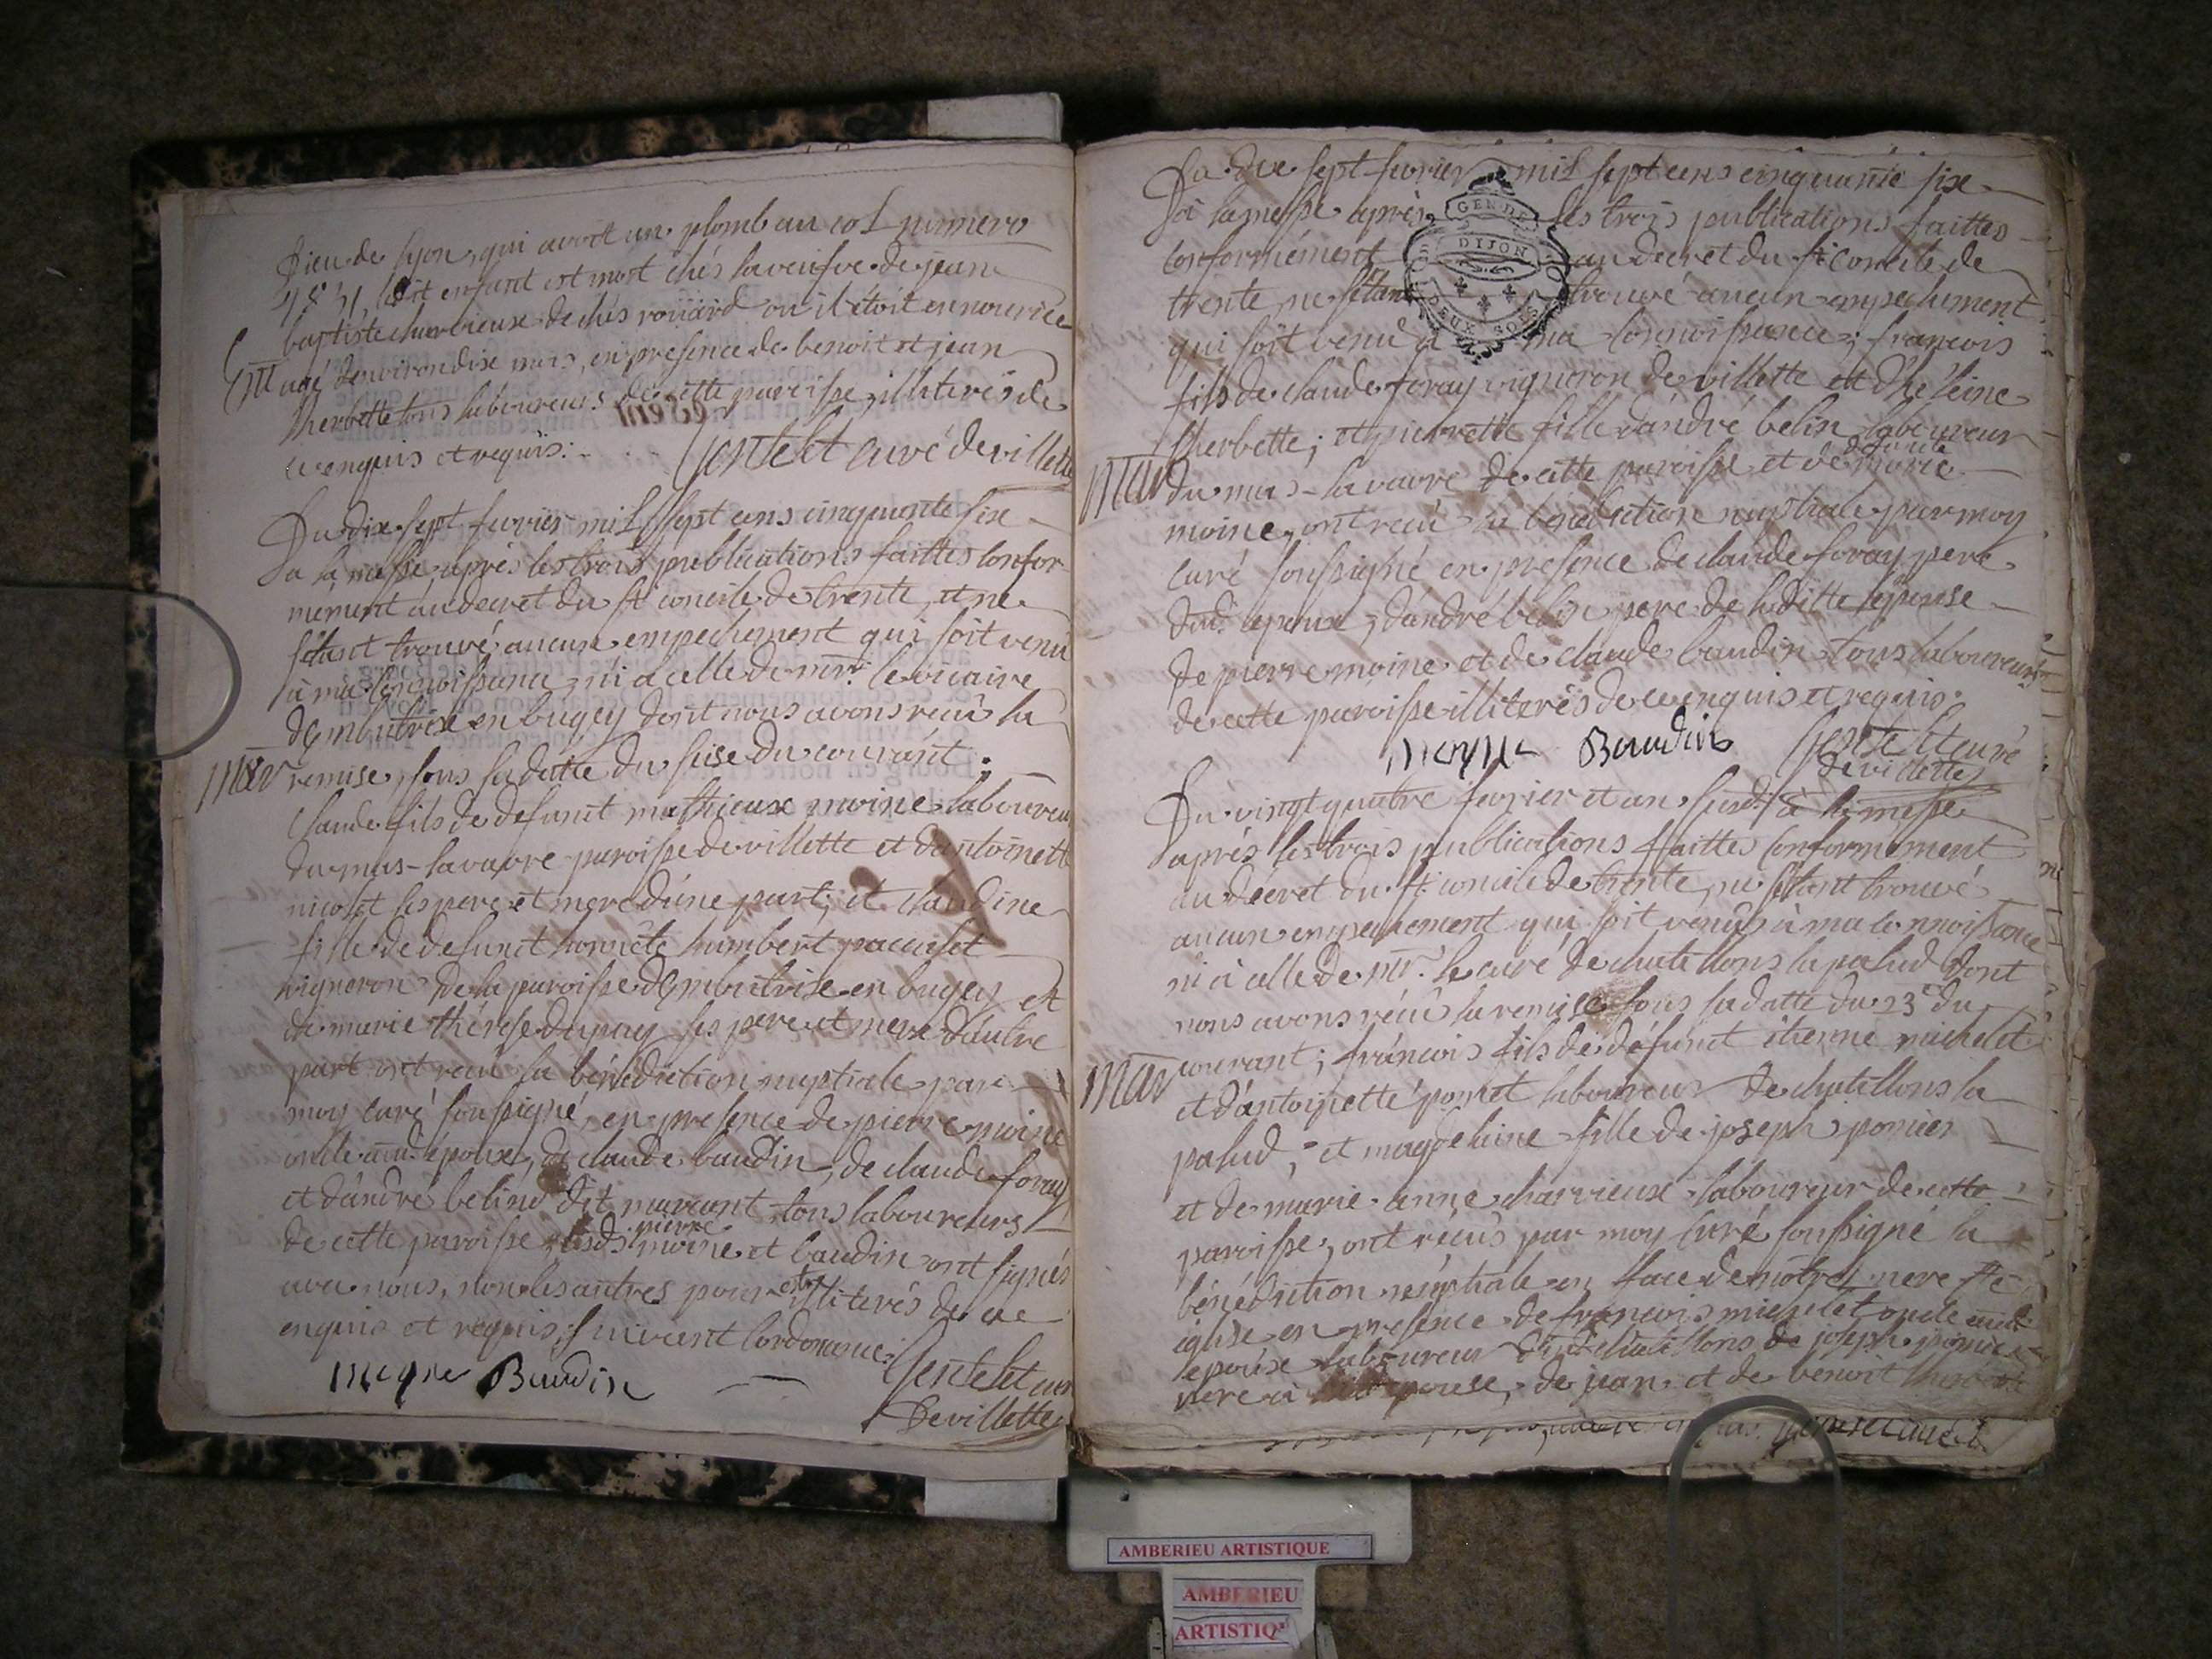 Dieu de lyon, qui avoit un plomb au col numero
ledit enfant est mort chés la veufve de jean
baptiste charvieux de chés roüiard ou il étoit en nourice
agé denviron dix mois, en presence de benoit et jean
therbette tous laboureurs de cette paroisse illiterés de
ce enquis et requis. Gentelet curé de villette
Du dix sept fevrier mil sept cens cinquante six
a la messe après les trois publications faittes confor
mément au decret du st concile de trente, et ne
s'étant trouvé aucun empechement qui soit venu
à ma connoissance, ni a celle de mr. le vicaire
d'Ambutrix en bugey dont nous avons recu la
mar remise, sous sa datte du seise du courant;
Claude fils de defunt mathieux moine laboureur
du mas-lavavre paroisse de villette et d'antoinette
nicolet ses pere et mere d'une part; et claudine
fille de defunct honnête humbert
vigneron de la paroisse d'Ambutrix en bugey et
de marie thérèse dupuy ses pere et mere d'autre
part ont recu la bénédiction nuptiale par
moy curé soussigné, en presence de pierre moine
oncle aud. époux, de claude baudin, de claude foray
et d'andré belin dit marcant tous laboureurs
de cette paroisse, lesds. pierre moine et baudin ont signés
avec nous, non les autres pour etre illiterés de ce
enquis et requis suivant l'ordonnance. Gentelet curé
moyne Baudin
De villette
Du dix sept fevrier mil sept cens cinquante six
à la messe après les trois publications faittes
GEN DE DIJON
DEUX SOLS
conformément au decret du st concile de
trente ne s'étant trouvé aucun empechement
qui soit venu à ma connoissance; francois
fils de claude foray vigneron de villette et d'heleine
therbette; et pierrette fille d'andré belin laboureur
mar du mas-lavavre de cette paroisse et de defunte marie
moine, ont recu la bénédiction nuptiale par moy
curé soussigné en presence de claude foray pere
dud. epoux, d'andré belin pere de laditte epouse
de pierre moine et de claude baudin tous laboureurs
de cette paroisse illiterés de ce enquis et requis.
moyne Baudin Gentelet curé
de villette
Du vingt quatre fevrier et an susd. à la messe
après les trois publications faittes conformément
au décret du st. concile de trente, ne s'étant trouvé
aucun empechement qui soit venus à ma connoissance
ni à celle de mr. le curé de chatillons la palud dont
nous avons recû la remise sous sa datte du 23e du
mar courant; francois fils de défunct etienne michelet
et d'antoinette ponset laboureur de chatillons la
palud; et magdelaine fille de joseph
et de marie anne charvieux laboureur de cette
paroisse, ont récus par moy curé soussigné la
bénédiction nuptiale en face de nôtre mere ste
église en presence de francois michelet oncle aud.
epoux laboureur dud. chatillons de joseph
pere à epouse, de jean et de benoit
AMBERIEU ARTISTIQUE
AMBERIEU
ARTISTIQ